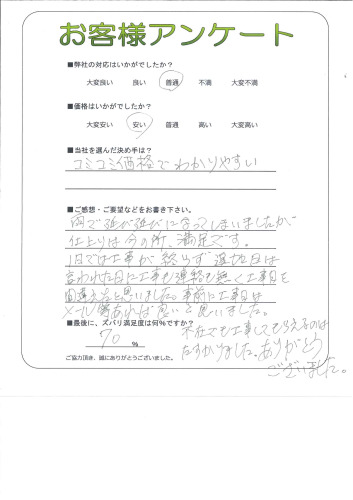 お客様アンケート
■弊社の対応はいかがでしたか?
大変良い 良い 普通 不満 大変不満
■価格はいかがでしたか?
大変安い 安い 普通 高い 大変高い
■当社を選んだ決め手は?
コミコミ価格でわかりやすい
■ご感想・ご要望などをお書き下さい。
雨で延び延びになってしまいましたが、
仕上りは今の所、満足です。
1日では工事が終らず翌日は
言われた日に工事も連絡も無く工事日を
間違えたと思いました。事前に工事日は
メール等あれば良いと思いました。
■最後に、ズバリ満足度は何%ですか?
70 %
不在でも工事してもらえるのは
たすかりました。ありがとう
ございました。
ご協力頂き、誠にありがとうございました。